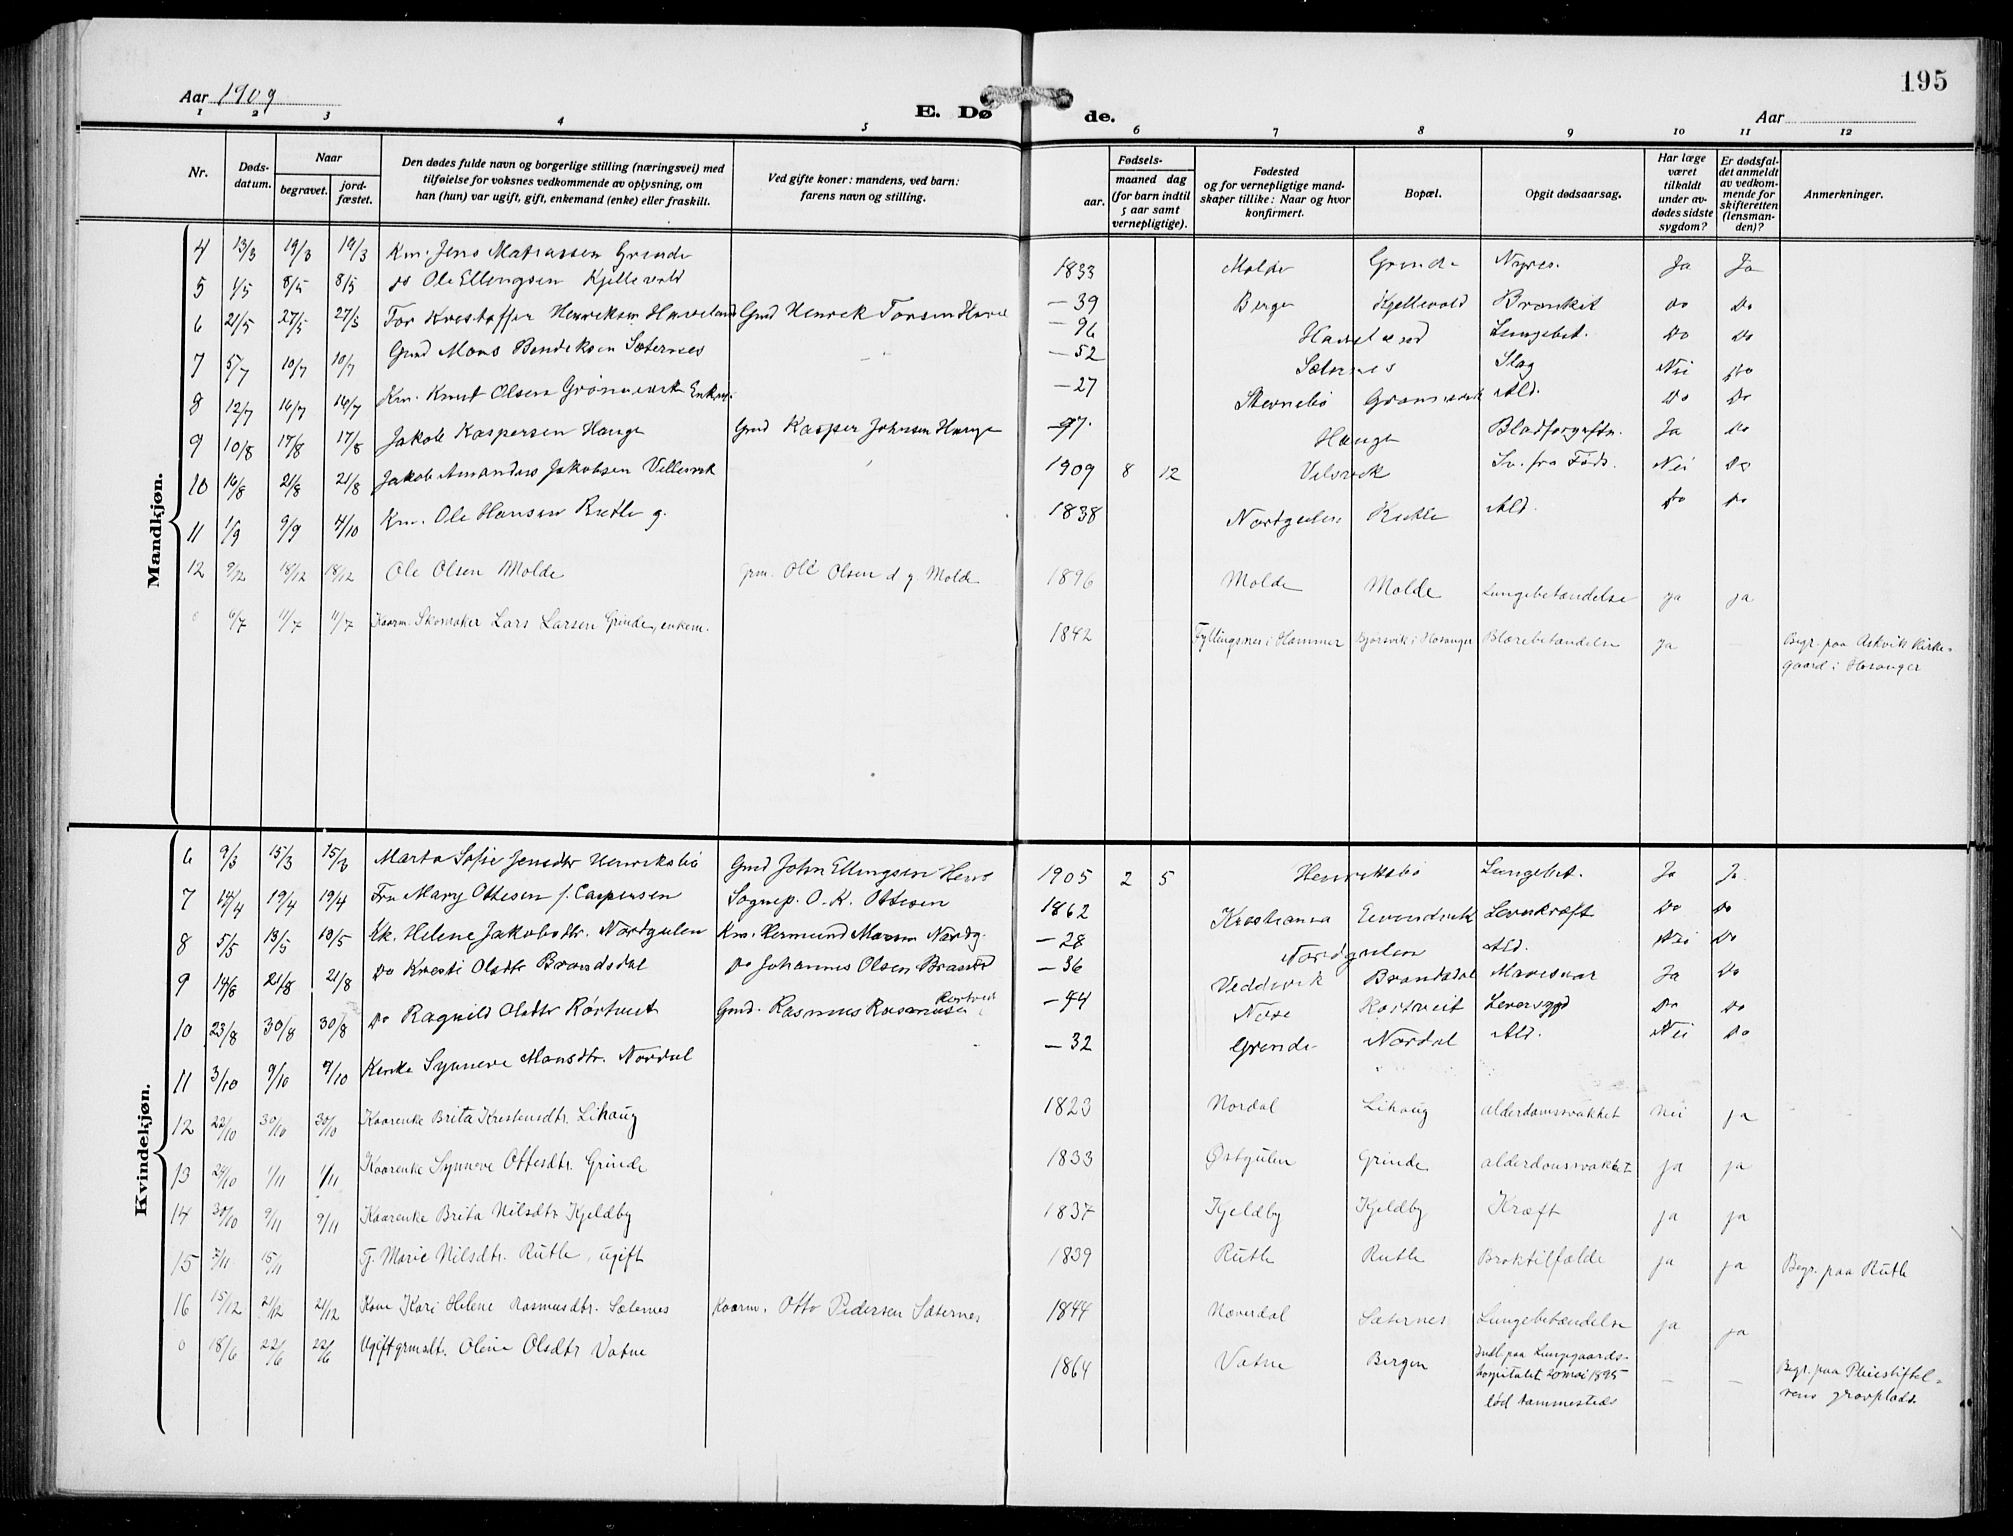 195
Aar 1909
E. Dø de.
Aar
1 2 3 4 5 6 7 8 9 10 11 12
Nr.
Døds-datum.
Naar
begravet.
jord-fæstet.
Den dødes fulde navn og borgerlige stilling (næringsvei) med
tilføielse for voksnes vedkommende av oplysning, om
han (hun) var ugift, gift, enkemand (enke) eller fraskilt.
Ved gifte koner: mandens, ved barn:
farens navn og stilling.
Fødsels-
aar. maaned dag
(for barn indtil
5 aar samt
vernepligtige).
Fødested
og for vernepligtige mand-
skaper tillike: Naar og hvor
konfirmert.
Bopæl.
Opgit dødsaarsag.
Har læge
været
tilkaldt
under av-
dødes sidste
sygdom?
Er dødsfal-
det anmeldt
av vedkom-
mende for
skifteretten
(lensman-
den)?
Anmerkninger.
Mandkjøn.
4 13/3 19/3 19/3 Km. Jens Matiassen Grinde 1833 Molde Grinde Nyres. Ja Ja
5 1/5 8/5 8/5 do Ole Ellingsen Kjellevold — 39 Berge Kjellevold Bronkit Do Do
6 21/5 27/5 27/5 Tor Kristoffer Henriksen Haveland Gmd Henrik Torsen — 96 Lungebet. Do Do
7 5/7 10/7 10/7 Gmd Mons Bendiksen Sæternes — 52 Sæternes Slag Nei Do
8 12/7 16/7 16/7 Km. Knut Olsen — 27 Stevnebø Ald. Do Do
9 10/8 17/8 17/8 Jakob Kaspersen Hauge Gmd Kasper Johnsen Hauge — 97 Hauge Blodforgiftn. Ja Do
10 16/8 21/8 21/8 Jakob Amandus Jakobsen Villesvik 1909 8 12 Sv. fra Føds. Nei Do
11 1/9 9/9 4/10 Km. Ole Hansen Rutle g. 1838 Nordgulen Rutle Ald. Do Do
12 9/12 18/12 18/12 Ole Olsen Molde Grm. Ole Olsen d y. Molde 1896 Molde Molde Lungebetændelse ja ja
0 6/7 11/7 11/7 Kaarm. Skomaker Lars Larsen Grinde, enkem. 1842 Fyllingsnes i Hammer Bjorsvik i Hosanger Blærebetændelse ja — Begr. paa Askvik Kirke-
gaard i Hosanger
Kvindekjøn.
6 9/3 15/3 15/3 Marta Sofie Jensdtr Henriksbø Gmd John Ellingsen Henr 1905 2 5 Henriksbø Lungebet. Ja Ja
7 14/4 19/4 19/4 Fru Mary Ottesen f. Caspersen Sognep. O. K. Ottesen 1862 Kristiania Eivindvik Levnkræft Do Do
8 5/5 13/5 13/5 Kk. Helene Jakobsdtr. Nordgulen Km. Hermund Monsen Nordg. — 28 Nordgulen Ald. Nei Do
9 14/8 21/8 21/8 Do Kristi Olsdtr Brandsdal Do Johannes Olsen — 36 Veddevik Brandsdal Mavesaar Ja Do
10 23/8 30/8 30/8 Do Ragnild Olsdtr Rørtveit Gmd. Rasmus Rasmusen Rørtveit — 44 Nose Rortveit Leversygd Do Do
11 3/10 9/10 9/10 Kenke Synneve Monsdtr. Nordal — 32 Grinde Nordal Ald. Nei Do
12 22/10 30/10 30/10 Kaarenke Brita Kristensdtr. Lihaug 1823 Nordal Lihaug alderdomssvakhet nei ja
13 24/10 1/11 1/11 Kaarenke Synneve Ottesdtr. Grinde 1833 Østgulen Grinde alderdomssvakhet ja ja
14 30/10 9/11 9/11 Kaarenke Brita Nilsdtr Kjeldby 1837 Kjeldby Kjeldby Kræft ja ja
15 7/11 15/11 Tj. Marie Nilsdtr. Rutle, ugift 1839 Rutle Rutle Broktilfælde ja ja Begr. paa Rutle
16 15/12 21/12 21/12 Kone Kari Helene Rasmusdtr. Sæternes Kaarm. Otto Pedersen Sæternes 1844 Næverdal Sæternes Lungebetændelse ja ja
0 18/6 22/6 22/6 Ugift grmdtr. Oline Olsdtr Vatne 1864 Vatne Bergen Indl. paa Lungegaards-
hospitalet 20 mai 1895
død sammesteds — — Begr. paa Pleiestiftel-
sens gravplads.